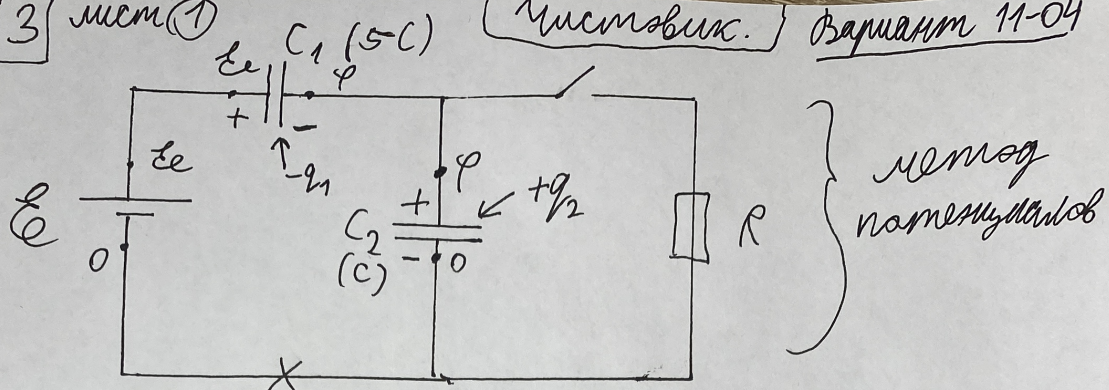 3 лист ① Чистовик. Вариант 11-04
C₁ (5C)
Ɛe φ
+ -
-q₁
Ɛe
Ɛ
0
φ
+ +q₂
C₂
(C) - 0
R
метод
потенциалов